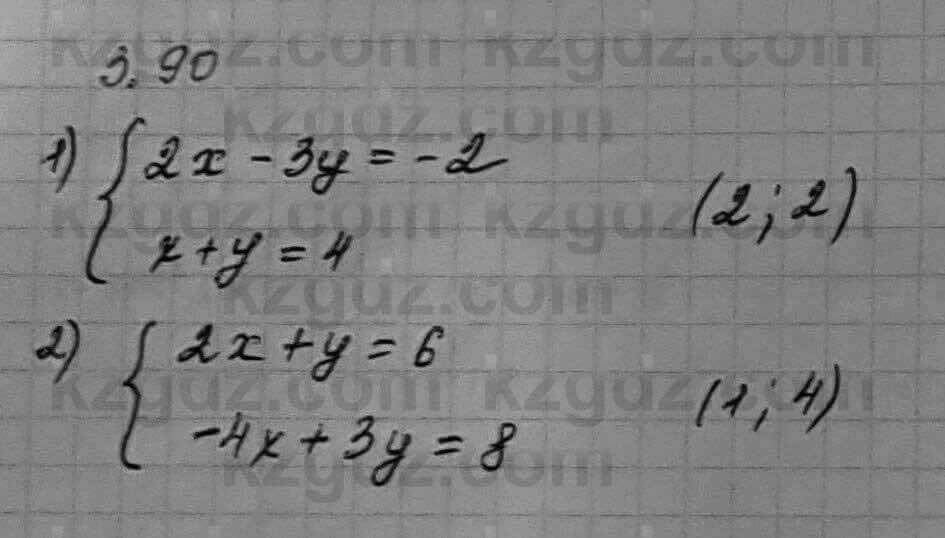 3.90
1) { 2x - 3y = -2
x + y = 4 (2; 2)
2) { 2x + y = 6
-4x + 3y = 8 (1; 4)
kzgdz.com kzgdz.com
kzgdz.com
kzgdz.com kzgdz.com
kzgdz.com
kzgdz.com kzgdz.com
kzgdz.com